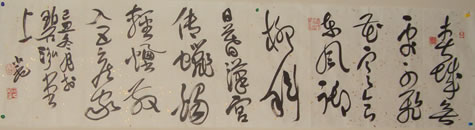 春城無
處不飛
花寒食
東風御
柳斜
日暮漢宮
傳蠟燭
輕煙散
入五侯家